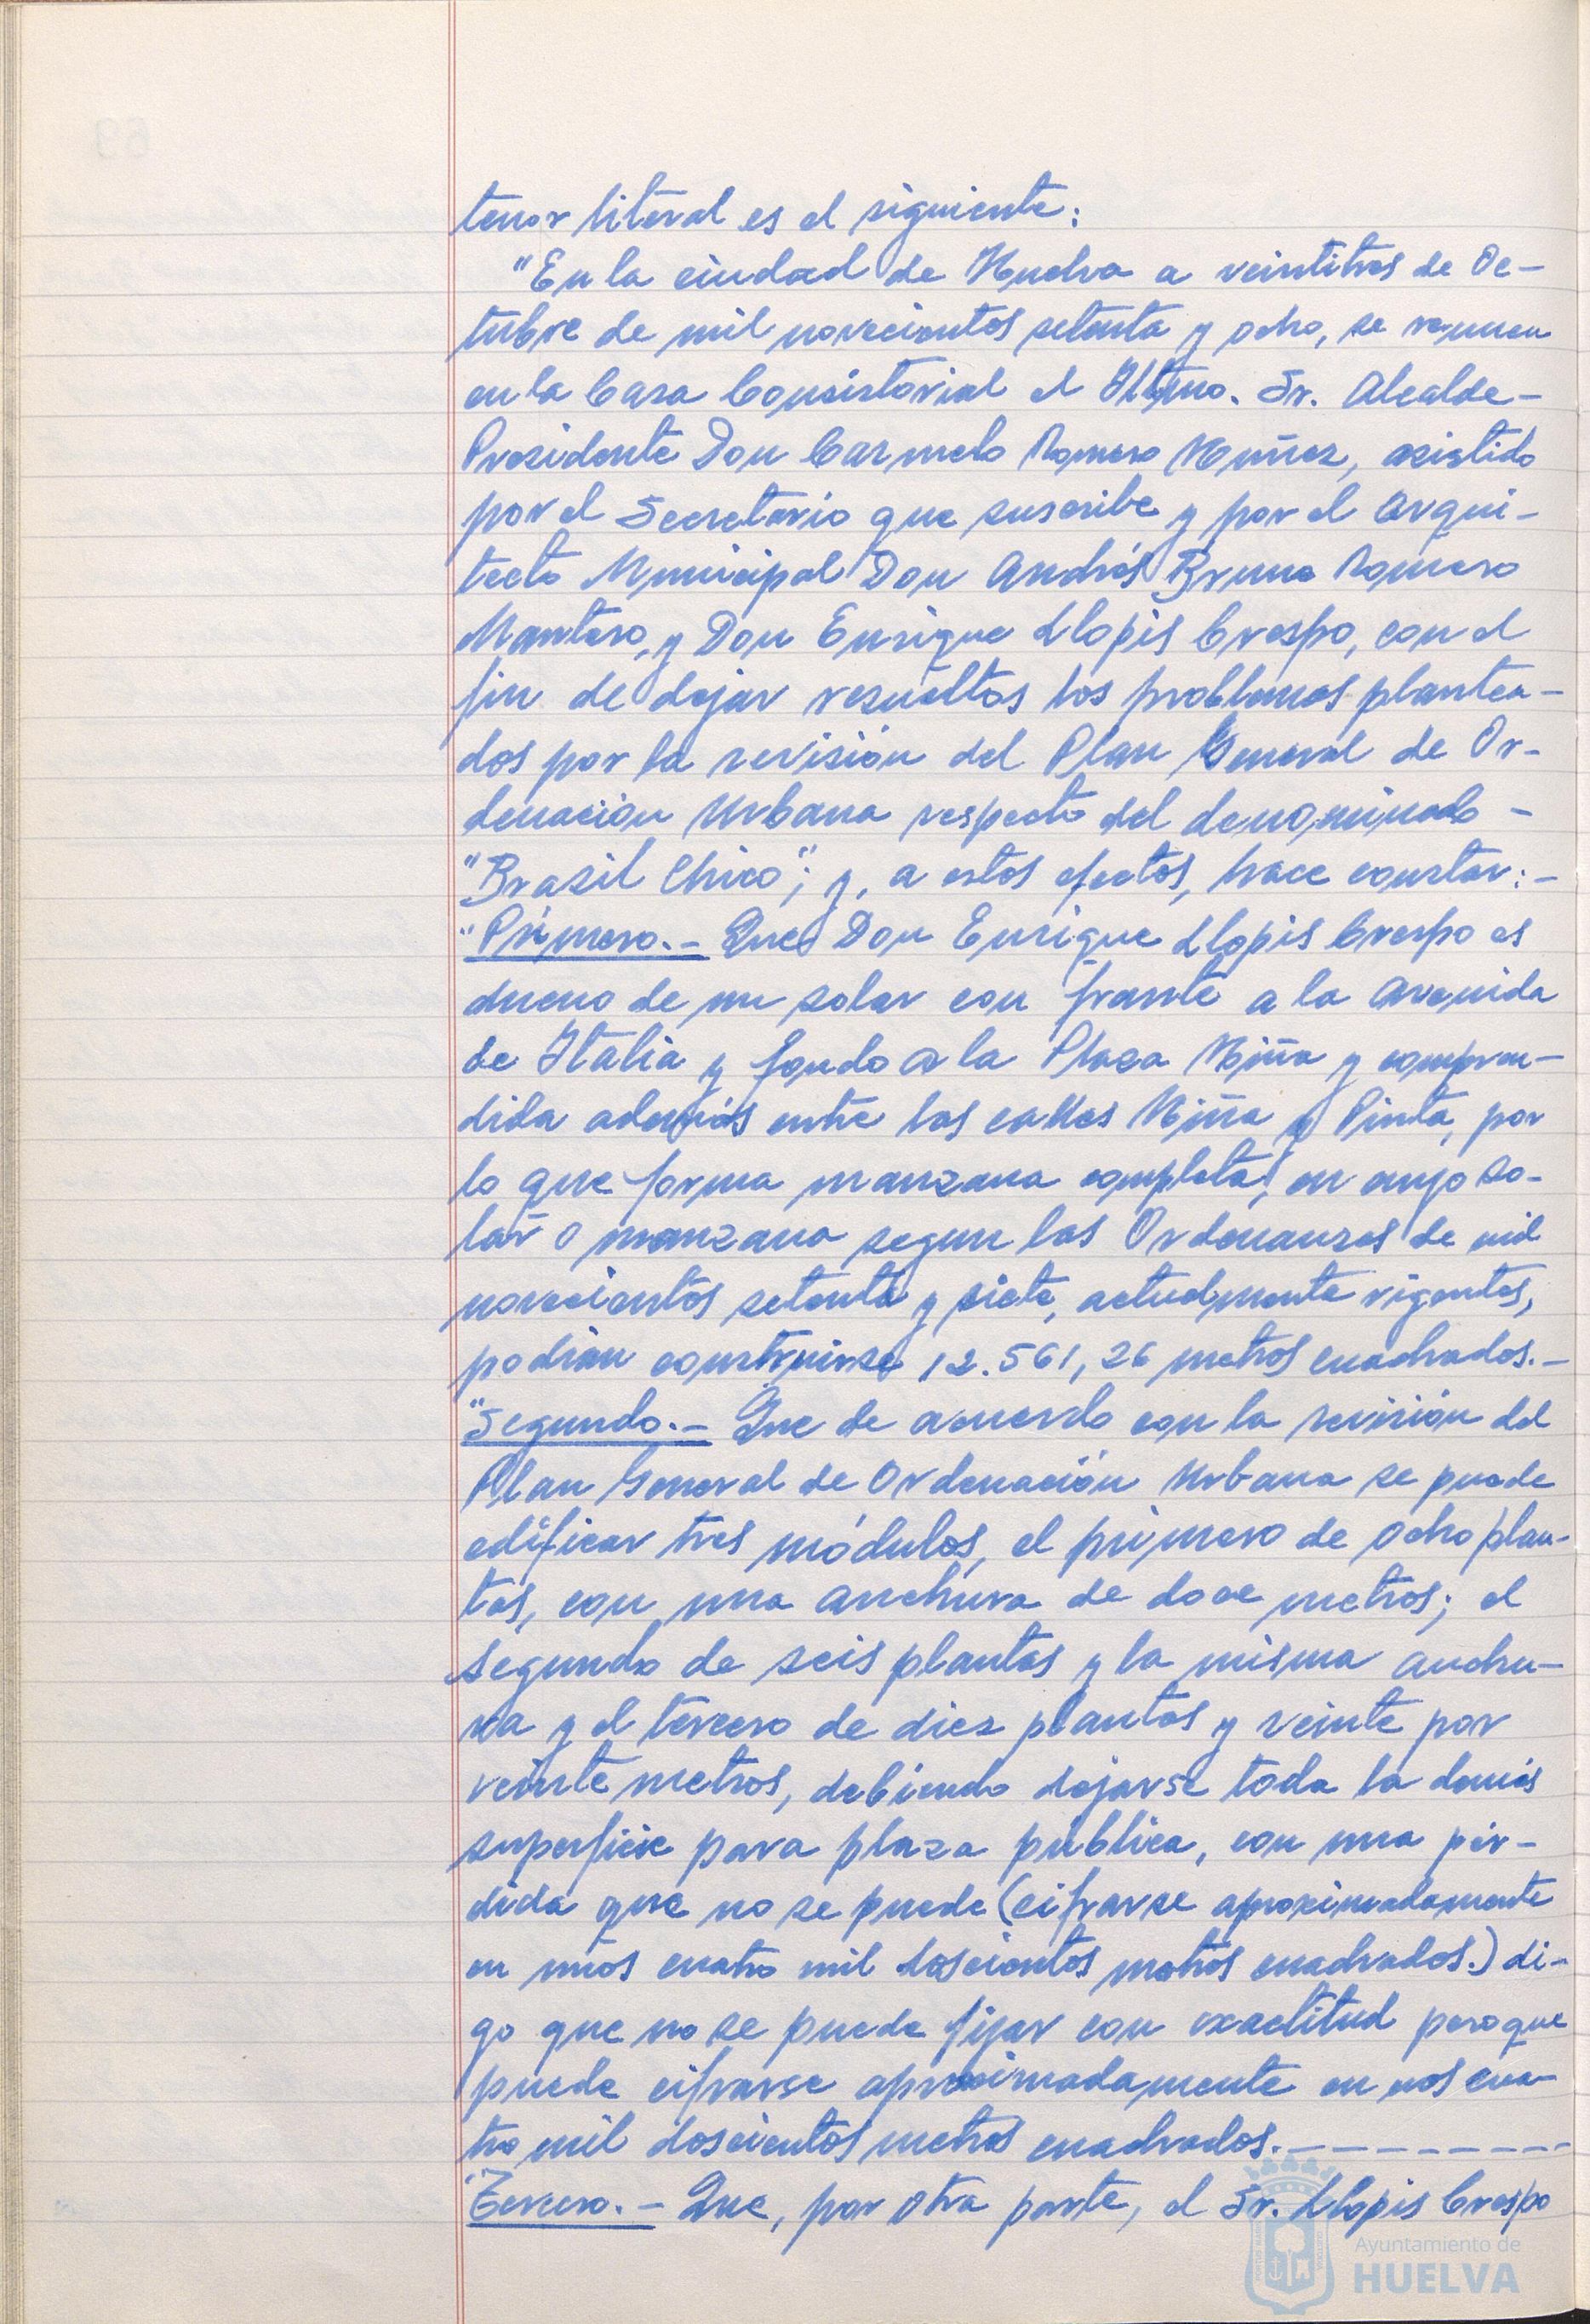 tenor literal es el siguiente:
"En la ciudad de Huelva a veintitres de Oc-
tubre de mil novecientos setenta y ocho, se reunen
en la Casa Consistorial el Iltmo. Sr. Alcalde-
Presidente Don Carmelo Romero Núñez, asistido
por el Secretario que suscribe y por el Arqui-
tecto Municipal Don Andrés Bruno Romero
Mantero, y Don Enrique Llopis Crespo, con el
fin de dejar resueltos los problemas plantea-
dos por la revisión del Plan General de Or-
denación Urbana respecto del denominado -
"Brasil Chico"; y, a estos efectos, hace constar:-
"Primero.- Que Don Enrique Llopis Crespo es
dueño de un solar con frante a la Avenida
de Italia y fondo a la Plaza Niña y compren-
dida además entre las calles Niña y Pinta, por
lo que forma manzana completa, en cuyo so-
lar o manzana segun las Ordenanzas de mil
novecientos setenta y siete, actualmente vigentes,
podían construirse 12.561,26 metros cuadrados.-
"Segundo.- Que de acuerdo con la revisión del
Plan General de Ordenación Urbana se puede
edificar tres módulos, el primero de ocho plan-
tas, con una anchura de doce metros; el
segundo de seis plantas y la misma anchu-
ra y el tercero de diez plantas y veinte por
veinte metros, debiendo dejarse toda la demás
superficie para plaza pública, con una pér-
dida que no se puede (cifrarse aproximadamente
en unos cuatro mil doscientos metros cuadrados.) di-
go que no se puede fijar con exactitud pero que
puede cifrarse aproximadamente en unos cua-
tro mil doscientos metros cuadrados.- - - - - - - - -
"Tercero.- Que, por otra parte, el Sr. Llopis Crespo
Ayuntamiento de
HUELVA